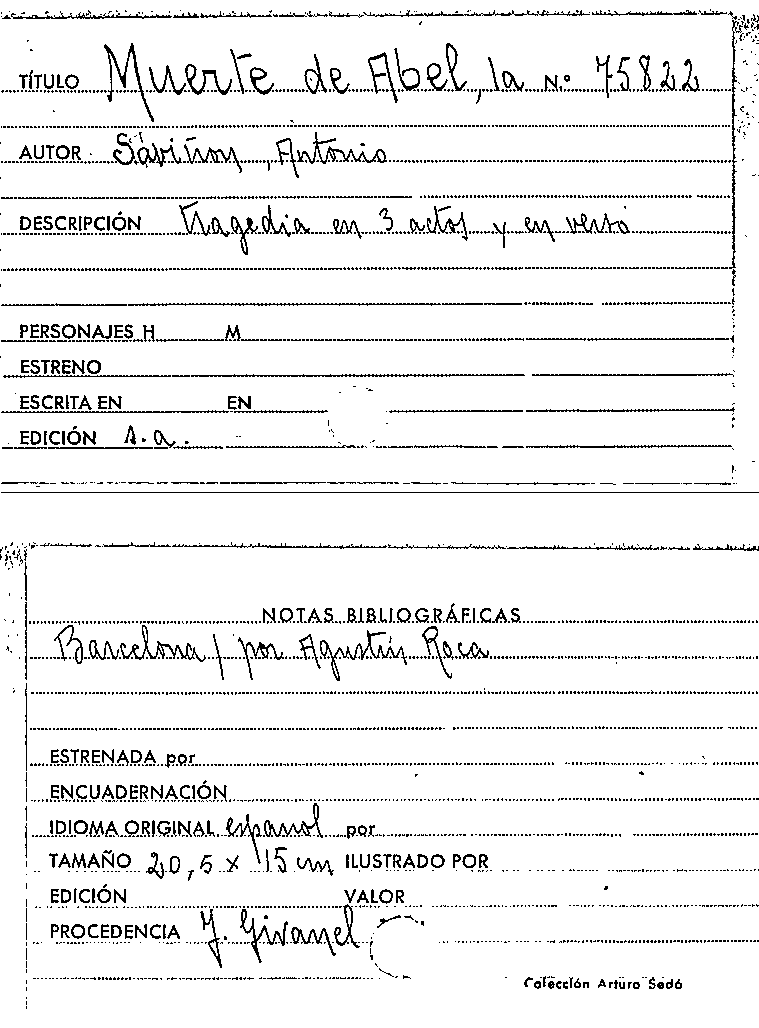 TÍTULO Muerte de Abel, la N.º 75822
AUTOR Sáviñon, Antonio
DESCRIPCIÓN tragedia en 3 actos y en verso
PERSONAJES H M
ESTRENO
ESCRITA EN EN
EDICIÓN s.a.
NOTAS BIBLIOGRÁFICAS
Barcelona / por Agustín Roca
ESTRENADA por
ENCUADERNACIÓN
IDIOMA ORIGINAL español por
TAMAÑO 20,5 x 15 cm ILUSTRADO POR
EDICIÓN VALOR
PROCEDENCIA J. Givanel
Colección Arturo Sedó